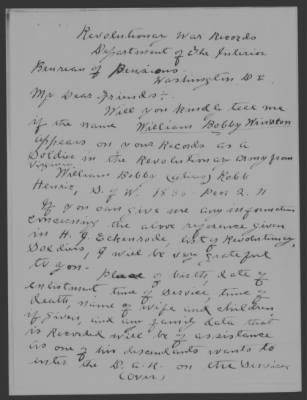 Revolutionar War Records
Department of The Interior
Beureau of Pensions.
Washington D.C.
My Dear Friends:-
Will you kindly tell me
if the name William Bobby Winston
appears on your Records as a
Soldier in the Revolutionar Army from
Virginia
William Bobby (alias) Robb
Henric, D. of W. 1835 2.11
If you can give me any information
concerning the above reference given
in H. J. Eckenrode, list of Revolutionary
Soldiers, I will be very grateful
to you. Place of birth, date of
enlistment time of service, time of
death, name of wife and children
if given, and any family data that
is Recorded will be of assistance
as one of his descendants wants to
enter the D.A.R. on the Service
(over)